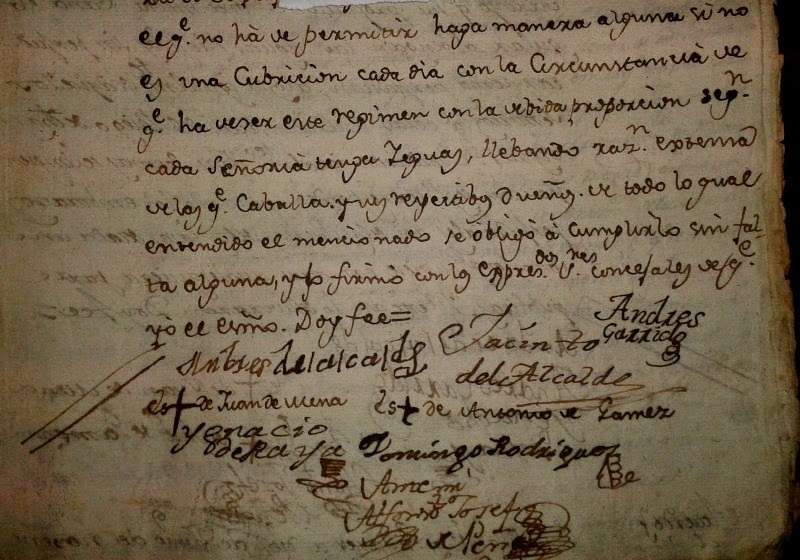 el q.e no hà de permitir haga manera alguna si no
es una Cubricion cada dia con la Circunstancia de
q.e ha de ser este regimen con la debida proporcion seg.n
cada Señoria tenga Yeguas, llebando raz.n extensa
de las q.e Caballa. y sus respectibos dueños. de todo lo qual
entendido el mencionado se obligó à cumplirlo sin fal-
ta alguna, y lo firmó con los expres.dos S.res concejales de q.e
yo el essno. Doy fee=
Andres del alcalde
Jacinto
del Alcalde
Andres
Garrido
Es + de Juan de Mena
Es + de Antonio de Gamez
Ygnacio
de Raya
Domingo Rodriguez
Ante mi
Alfonso Josef
de